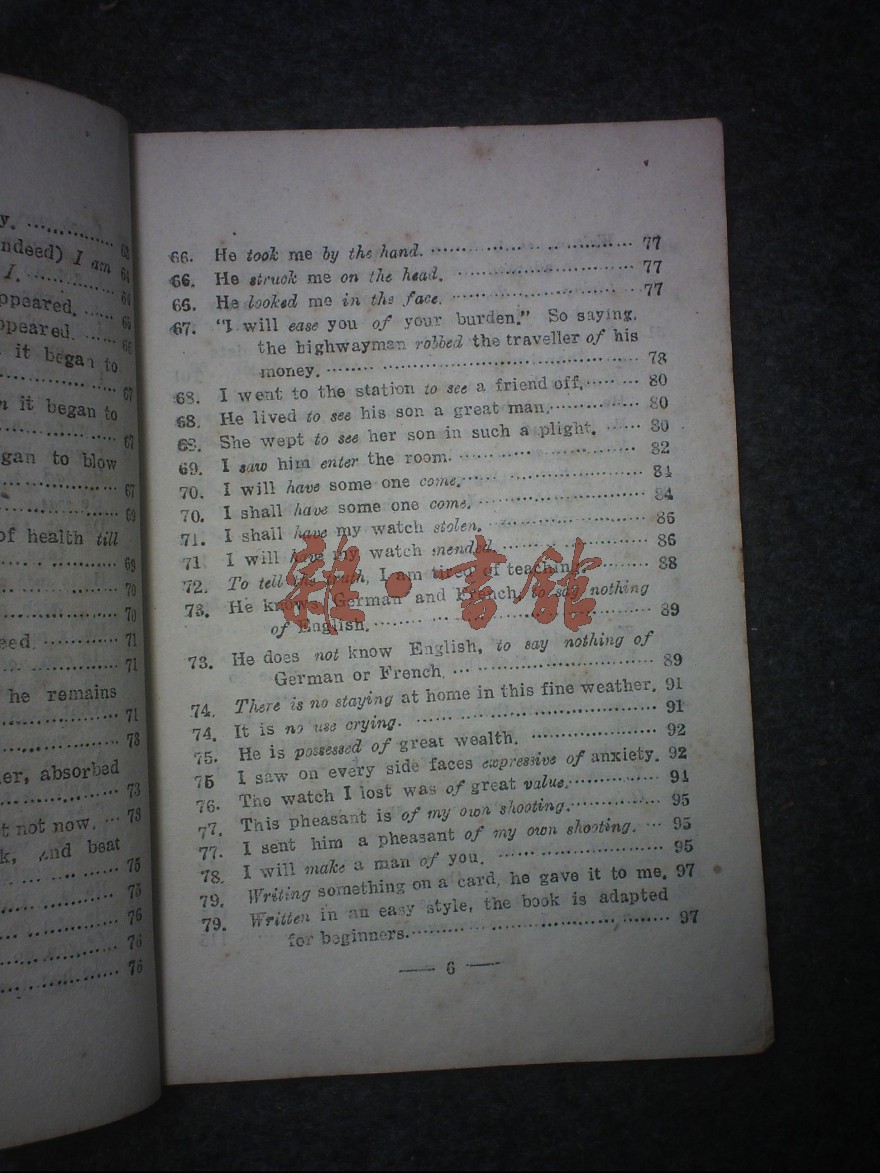 y. ............... 63
ndeed) I am 64
I. ............ 64
ppeared. ..... 65
ppeared. ... 66
it began to
............... 67
n it began to
............... 67
gan to blow
............... 67
............... 69
of health till
............... 69
............... 70
............... 70
eed. ............ 71
............... 71
he remains
............... 71
............... 73
er, absorbed
............... 73
t not now. ... 73
k, and beat
............... 75
............... 75
............... 76
............... 76
............... 76
66. He took me by the hand. ............... 77
66. He struck me on the head. ............... 77
66. He looked me in the face. ............... 77
67. "I will ease you of your burden." So saying,
the highwayman robbed the traveller of his
money. ............... 78
68. I went to the station to see a friend off. ...... 80
68. He lived to see his son a great man. ......... 80
68. She wept to see her son in such a plight. ...... 80
69. I saw him enter the room. ............... 82
70. I will have some one come. ............... 84
70. I shall have some one come. ............... 84
71. I shall have my watch stolen. ............... 86
71 I will have my watch mended. ............... 86
72. To tell the truth, I am tired of teaching. ...... 88
73. He knows German and French, to say nothing
of English. ............... 89
73. He does not know English, to say nothing of
German or French. ............... 89
74. There is no staying at home in this fine weather. 91
74. It is no use crying. ............... 91
75. He is possessed of great wealth. ............... 92
75 I saw on every side faces expressive of anxiety. 92
76. The watch I lost was of great value. ............ 94
77. This pheasant is of my own shooting. ............ 95
77. I sent him a pheasant of my own shooting. ... 95
78. I will make a man of you. ............... 95
79. Writing something on a card, he gave it to me. 97
79. Written in an easy style, the book is adapted
for beginners. ............... 97
— 6 —
雜·書館